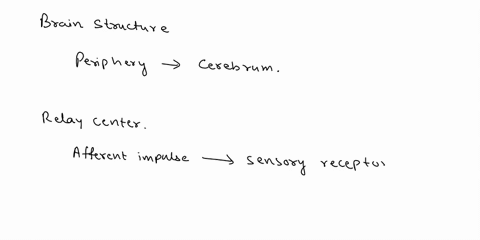 Brain structure
Periphery → Cerebrum.
Relay center.
Afferent impulse → sensory receptor